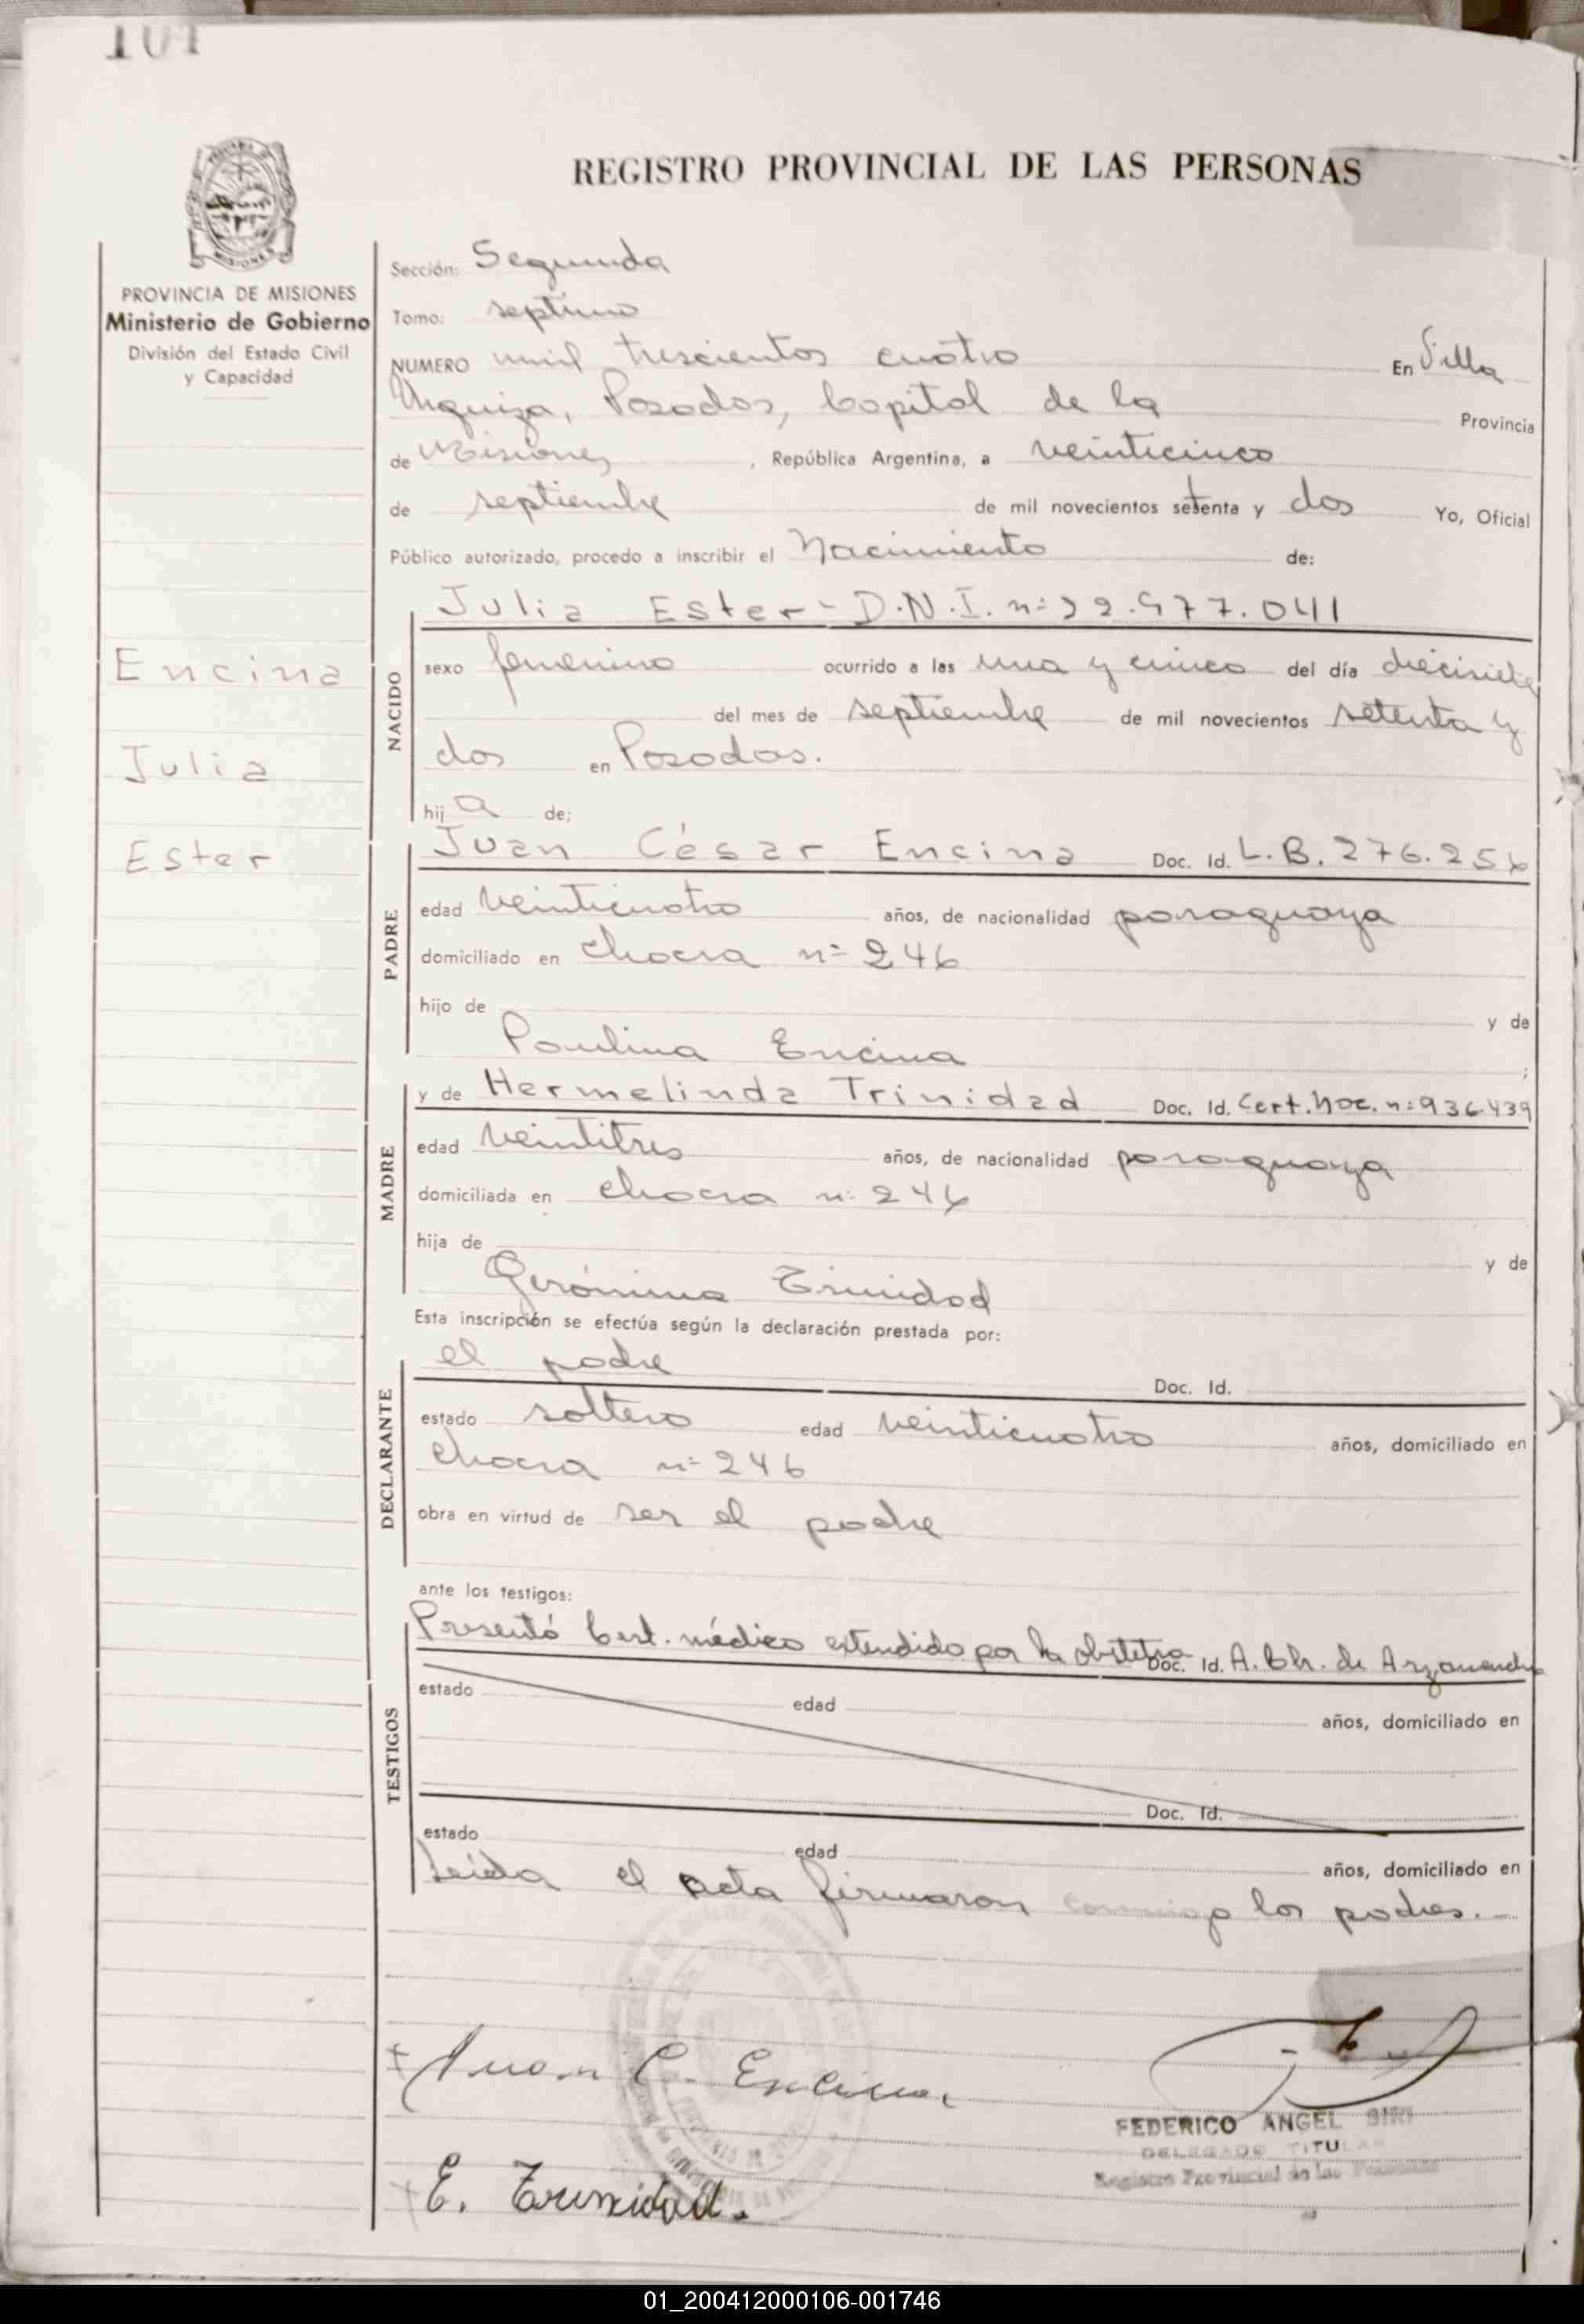 104
REGISTRO PROVINCIAL DE LAS PERSONAS
PROVINCIA DE MISIONES
Ministerio de Gobierno
División del Estado Civil
y Capacidad
Sección: Segunda
Tomo: septimo
NUMERO mil trescientos cuatro En Villa
Urquiza, Posadas, Capital de la Provincia
de Misiones, República Argentina, a veinticinco
de septiembre de mil novecientos setenta y dos Yo, Oficial
Público autorizado, procedo a inscribir el Nacimiento de:
Julia Ester - D.N.I. n= 22.977.041
Encina
Julia
Ester
NACIDO
sexo femenino ocurrido a las una y cinco del día diecisiete
del mes de septiembre de mil novecientos setenta y
dos en Posadas.
hij a de;
PADRE
Juan César Encina Doc. Id. L.B. 276.256
edad veinticuatro años, de nacionalidad paraguaya
domiciliado en chacra n= 246
hijo de y de
Paulina Encina ;
MADRE
y de Hermelinda Trinidad Doc. Id. Cert. Nac. n= 936.439
edad veintitres años, de nacionalidad paraguaya
domiciliada en chacra n= 246
hija de y de
Gerónima Trinidad
Esta inscripción se efectúa según la declaración prestada por:
DECLARANTE
el padre Doc. Id.
estado soltero edad veinticuatro años, domiciliado en
chacra n= 246
obra en virtud de ser el padre
ante los testigos:
TESTIGOS
Presentó Cert. médico extendido por la obstetra Doc. Id. A. Ch. de
estado edad años, domiciliado en
Doc. Id.
estado edad años, domiciliado en
Leída el acta firmaron conmigo los padres.-
Juan C. Encina
E. Trinidad.
FEDERICO ANGEL SIRI
DELEGADO TITULAR
Registro Provincial de las Personas
01_200412000106-001746